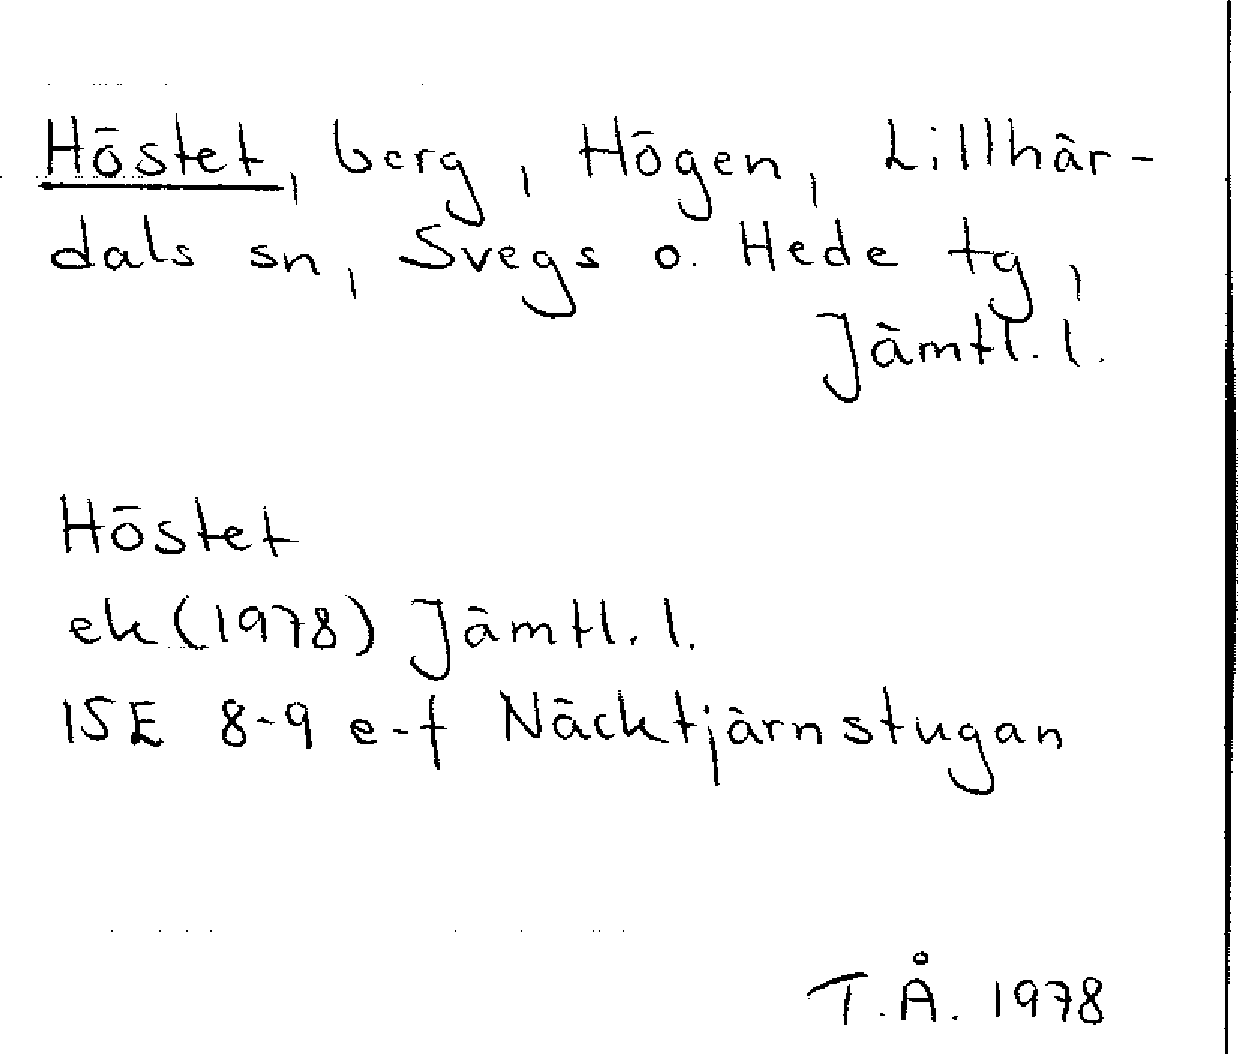 Höstet, berg, Högen, Lillhär-
dals sn, Svegs o. Hede tg,
Jämtl. l.
Höstet
ek (1978) Jämtl. l.
15E 8-9 e-f Näcktjärnstugan
T.Å. 1978